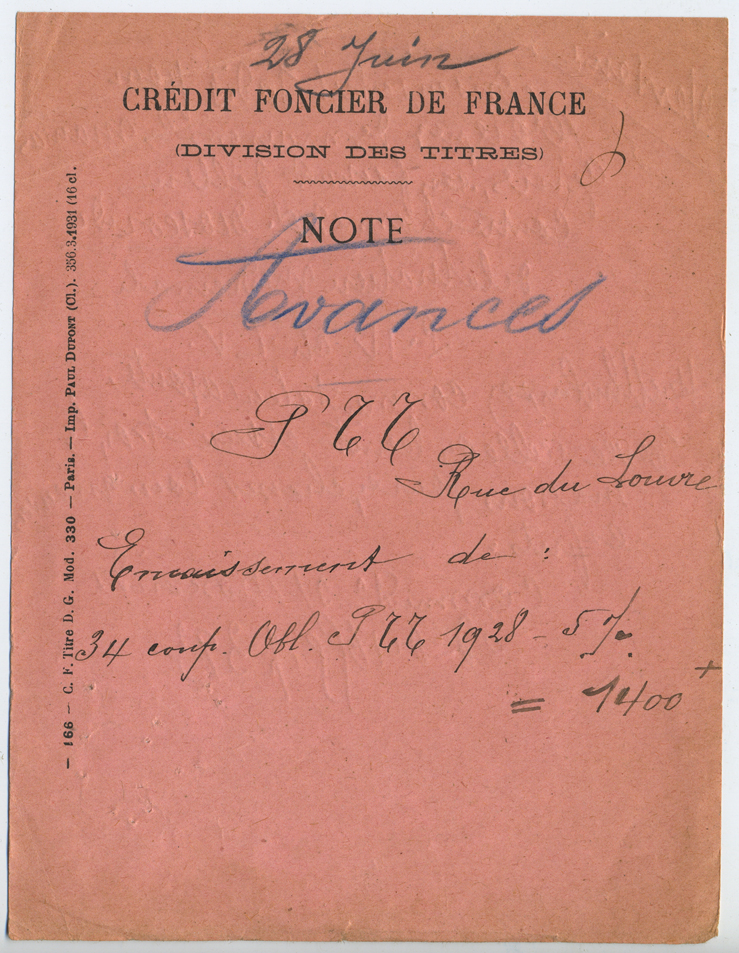 28 Juin
CRÉDIT FONCIER DE FRANCE
(DIVISION DES TITRES)
NOTE
Avances
PTT
Rue du Louvre
Encaissement de :
34 coup. Obl. PTT 1928 - 5 %
= 1400
— 166 — C. F. Titre D. G. Mod. 330 — Paris. — Imp. PAUL DUPONT (Cl.). 356.3.1931 (16 cl.